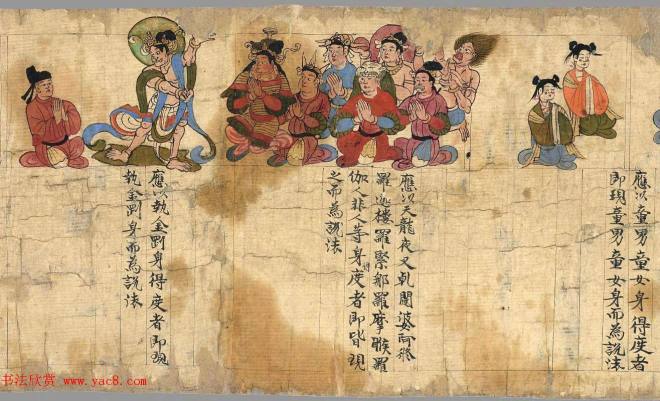 應以童男童女身得度者
即現童男童女身而為說法
應以天龍夜叉乹闥婆阿脩
羅迦樓羅緊那羅摩睺羅
伽人非人等身得度者即皆現
之而為說法
應以執金剛身得度者即現
執金剛身而為說法
书法欣赏 www.yac8.com